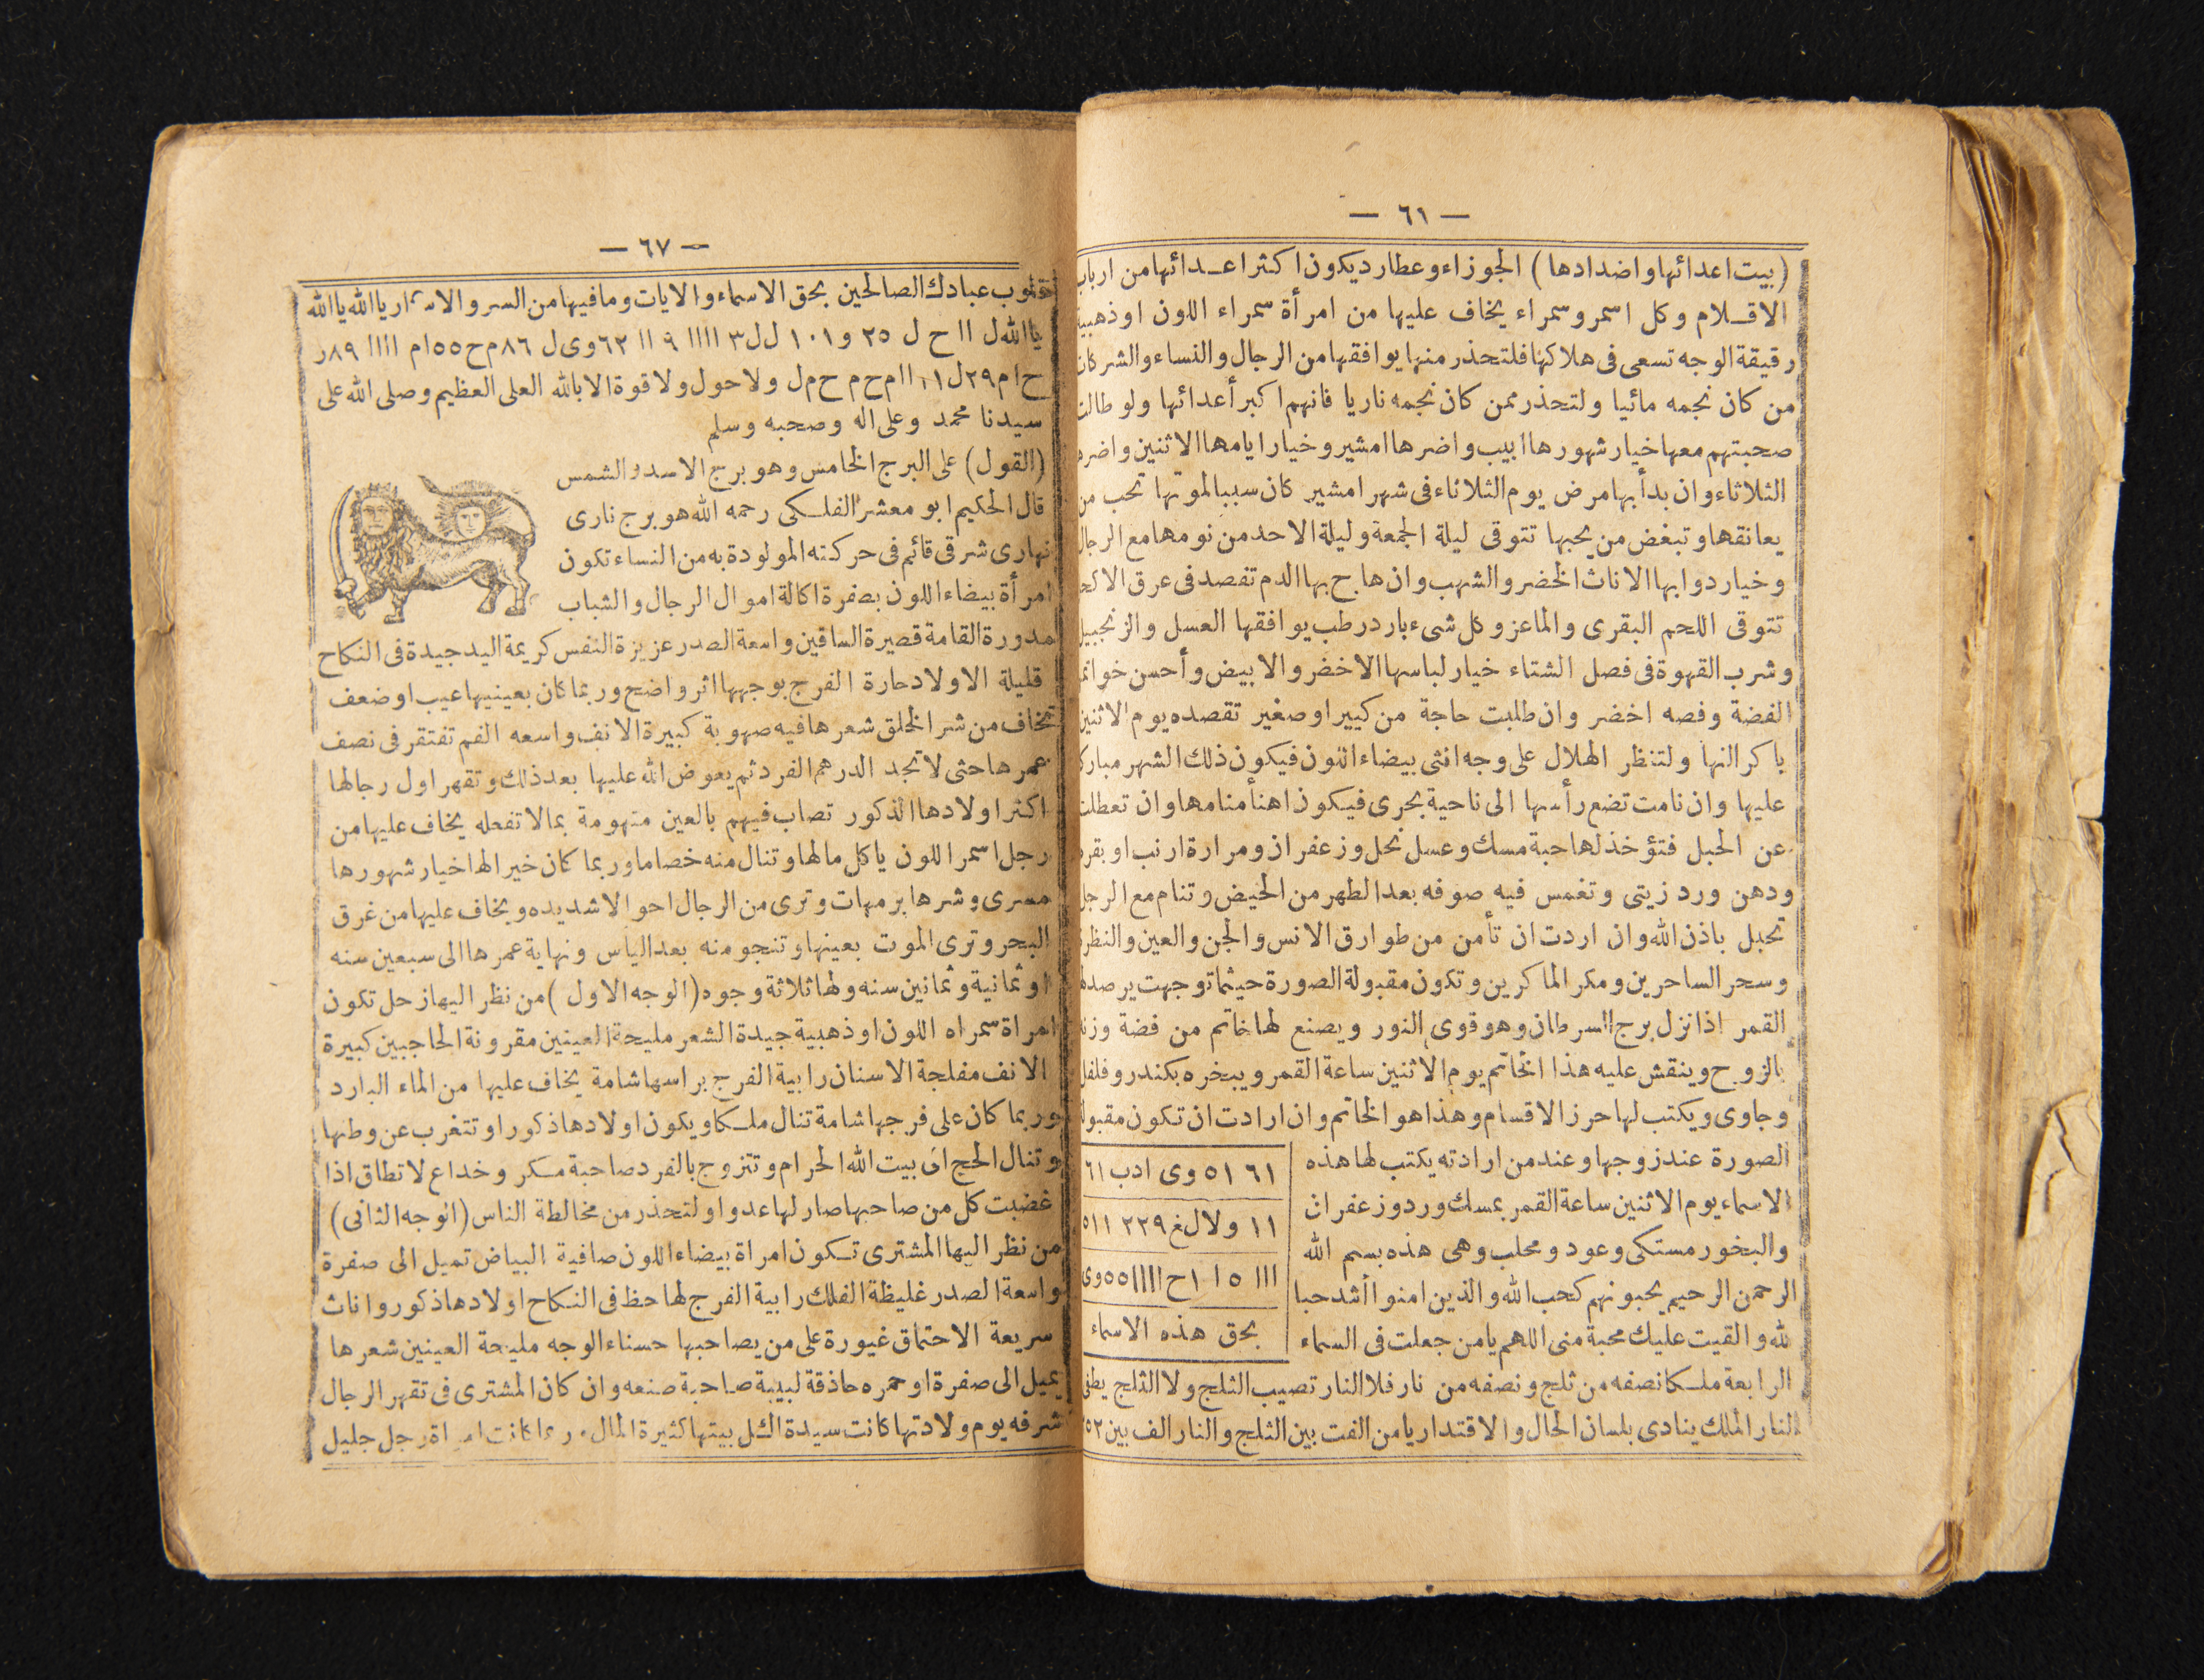 — ٦١ —
(بيت اعدائها واضدادها) الجوزاء وعطارد يكون اكثر اعدائها من ارباب
الاقلام وكل اسمر وسمراء يخاف عليها من امرأة سمراء اللون او ذهبية
رقيقة الوجه تسعى فى هلاكها فلتحذر منها يوافقها من الرجال والنساء والشركات
من كان نجمه مائيا ولتحذر ممن كان نجمه ناريا فانهم اكبر أعدائها ولو طالت
صحبتهم معها خيار شهورها ابيب واضرها امشير وخيار ايامها الاثنين واضرها
الثلاثاء وان بدأ بها مرض يوم الثلاثاء فى شهر امشير كان سببا لموتها تحب من
يعانقها وتبغض من يحبها تتوقى ليلة الجمعة وليلة الاحد من نومها مع الرجال
وخيار دوابها الاناث الخضر والشهب وان هاج بها الدم تفصد فى عرق الاكحل
تتوقى اللحم البقرى والماعز وكل شىء بارد رطب يوافقها العسل والزنجبيل
وشرب القهوة فى فصل الشتاء خيار لباسها الاخضر والابيض وأحسن خواتم
الفضة وفصه اخضر وان طلبت حاجة من كبير او صغير تقصده يوم الاثنين
باكر النها ولتنظر الهلال على وجه انثى بيضاء اللون فيكون ذلك الشهر مبارك
عليها وان نامت تضع رأسها الى ناحية بحرى فيكون اهنأ منامها وان تعطلت
عن الحبل فتؤخذ لها حبة مسك وعسل نحل وزعفران ومرارة ارنب او بقرة
ودهن ورد زيتى وتغمس فيه صوفه بعد الطهر من الحيض وتنام مع الرجل
تحبل باذن الله وان اردت ان تأمن من طوارق الانس والجن والعين والنظرة
وسحر الساحرين ومكر الماكرين وتكون مقبولة الصورة حيثما توجهت يرصد لها
القمر اذا نزل برج السرطان وهو قوى النور ويصنع لها خاتم من فضة وزنه
بالزوج وينقش عليه هذا الخاتم يوم الاثنين ساعة القمر ويبخره بكندر وفلفل
وجاوى ويكتب لها حرز الاقسام وهذا هو الخاتم وان ارادت ان تكون مقبولة
الصورة عند زوجها وعند من ارادته يكتب لها هذه
الاسماء يوم الاثنين ساعة القمر بمسك ورد وزعفران
والبخور مستكى وعود ومحلب وهى هذه بسم الله
الرحمن الرحيم يحبونهم كحب الله والذين امنوا أشد حبا
لله والقيت عليك محبة منى اللهم يا من جعلت فى السماء
٦١ ٥١ وى ادب ٦١
١١ ولا لغ ٢٣٩ ٥١١
ااا ٥ ا اح اااا ٥٥ وى
بحق هذه الاسماء
الرابعة ملكا نصفه من ثلج ونصفه من نار فلا النار تصيب الثلج ولا الثلج يطفى
النار الملك ينادى بلسان الحال والاقتدار يا من الفت بين الثلج والنار الف بين ٢٥٣
— ٦٧ —
قلوب عبادك الصالحين بحق الاسماء والايات وما فيها من السر والاسرار يا الله يا الله
يا الله ل اا ح ل ٢٥ و ١٠١ ل ل ٣ اااا ٩ اا ٦٢ وى ل ٨٦ م ح ٥٥ ام اااا ٨٩ ر
ح ا م ٢٩ ل ١١ اا م ح م ح م ل ولا حول ولا قوة الا بالله العلى العظيم وصلى الله على
سيدنا محمد وعلى اله وصحبه وسلم
(القول) على البرج الخامس وهو برج الاسد والشمس
قال الحكيم ابو معشر الفلكى رحمه الله هو برج نارى
نهارى شرقى قائم فى حركته المولودة به من النساء تكون
امرأة بيضاء اللون بصفرة اكالة اموال الرجال والشباب
مدورة القامة قصيرة الساقين واسعة الصدر عزيزة النفس كريمة اليد جيدة فى النكاح
قليلة الاولاد حارة الفرج بوجهها اثر واضح وربما كان بعينيها عيب او ضعف
تخاف من شر الخلق شعرها فيه صهوبة كبيرة الانف واسعه الفم تفتقر فى نصف
عمرها حتى لا تجد الدرهم الفرد ثم يعوض الله عليها بعد ذلك وتقهر اول رجالها
اكثر اولادها الذكور تصاب فيهم بالعين متهومة بما لا تفعله يخاف عليها من
رجل اسمر اللون ياكل مالها وتنال منه خصاما وربما كان خيرا لها خيار شهورها
مسرى وشرها برمهات وترى من الرجال احوالا شديده ويخاف عليها من غرق
البحر وترى الموت بعينها وتنجو منه بعد اليأس ونهاية عمرها الى سبعين سنه
او ثمانية وثمانين سنه ولها ثلاثة وجوه (الوجه الاول) من نظر اليها زحل تكون
امراة سمراء اللون او ذهبية جيدة الشعر مليحة العينين مقرونة الحاجبين كبيرة
الانف مفلجة الاسنان رابية الفرج براسها شامة يخاف عليها من الماء البارد
وربما كان على فرجها شامة تنال ملكا ويكون اولادها ذكورا وتتغرب عن وطنها
وتنال الحج الى بيت الله الحرام وتتزوج بالفرد صاحبة مكر وخداع لا تطاق اذا
غضبت كل من صاحبها صار لها عدوا ولتحذر من مخالطة الناس (الوجه الثانى)
من نظر اليها المشترى تكون امراة بيضاء اللون صافية البياض تميل الى صفرة
واسعة الصدر غليظة الفلك رابية الفرج لها حظ فى النكاح اولادها ذكور واناث
سريعة الاحتماق غيورة على من يصاحبها حسناء الوجه مليحة العينين شعرها
يميل الى صفرة او حمره حاذقة لبيبة صاحبة صنعه وان كان المشترى فى تقهر الرجال
شرفه يوم ولادتها كانت سيدة اكل بيتها كثيرة المال وربما كانت امراة رجل جليل